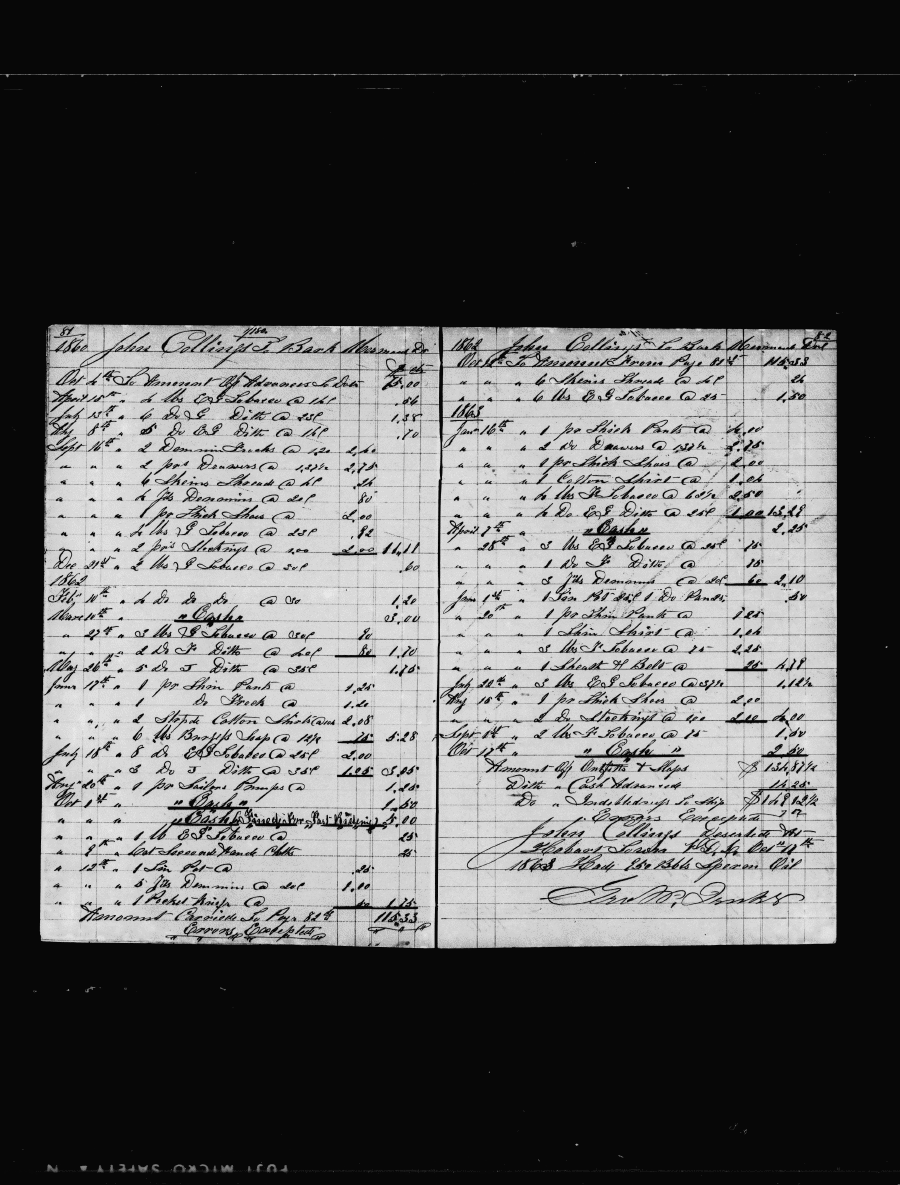 81
1860 John Collings To Bark Merimac Dr
$ cts
Oct 4th To Amount Of Advances To Date 75.00
April 15th " 4 lbs E.G Tobacco @ 14¢ .56
July 13th " 6 Do G Ditto @ 23¢ 1.38
Aug 8th " 5 Do E.G Ditto @ 14¢ .70
Sept 16th " 2 Denmin Frocks @ 1.20 2.40
" " " 2 prs Drawers @ 1.37½ 2.75
" " " 6 Skeins Thread @ 4¢ .24
" " " 4 Yds Denmins @ 20¢ 80
" " " 1 pr Thick Shoes @ 2.00
" " " 4 lbs G Tobacco @ 23¢ 92
" " " 2 prs Stockings @ 1.00 2.00 11.11
Dec 21st " 2 lbs G Tobacco @ 30¢ .60
1862
Feby 10th " 4 Do Do Do @ 30 1.20
March 10th " " Cash " 3.00
" 27th " 3 lbs G Tobacco @ 30¢ 90
" " " 2 Do F Ditto @ 40¢ 80 1.70
May 26th " 5 Do J Ditto @ 35¢ 1.75
June 17th " 1 pr Thin Pants @ 1.25
" " " 1 Do Frock @ 1.20
" " " 2 Cotton Shirts @ 1.04 2.08
" " " 6 lbs Soap @ 12½ 75 5.28
July 18th " 8 Do E.G Tobacco @ 25¢ 2.00
" " " 3 Do J Ditto @ 35¢ 1.05 3.05
Aug 20th " 1 pr Sailors Pumps @ 1.25
Oct 1st " " Cash " 1.50
" Cash 5.00
" " " 1 lb E.G Tobacco @ 25
" 9th " Second Hand 25
" 12th " 1 Tin Pot @ .25
" " " 5 Yds Denmins @ 20¢ 1.00
" " " 1 Pocket Knife @ 50 1.75
Amount Carried To Page 82d 115.33
Errors Excepted
82
1862 John Collings To Bark Merimac Dr
Oct 12th To Amount From Page 81st 115.33
" " " 6 Skeins Thread @ 4¢ 24
" " " 6 lbs E.G Tobacco @ 25 1.50
1863
Jany 16th " 1 pr Thick Pants @ 4.00
" " " 2 Do Drawers @ 1.37½ 2.75
" " " 1 pr Thick Shoes @ 2.00
" " " 1 Cotton Shirt @ 1.04
" " " 4 lbs F Tobacco @ 62½ 2.50
" " " 4 Do E.G Ditto @ 25¢ 1.00 13.29
April 7th " " Cash " 2.25
" 28th " 3 lbs E.G Tobacco @ 25¢ 75
" " " 1 Do F Ditto @ 75
" " " 3 Yds Denmins @ 20¢ 60 2.10
June 1st " 1 Tin Pot 25¢ 1 Do Pan 25 .50
" 20th " 1 pr Thin Pants @ 1.25
" " " 1 Thin Shirt @ 1.04
" " " 3 lbs F Tobacco @ 75 2.25
" " " 1 Sheath & Belt @ 25 4.79
July 20th " 3 lbs E.G Tobacco @ 37½ 1.12½
Aug 15th " 1 pr Thick Shoes @ 2.00
" " " 2 Do Stockings @ 1.00 2.00 4.00
Sept 8th " 2 lbs F Tobacco @ 75 1.50
Oct 17th " " Cash " 2.50
Amount Of Outfitts & Slops $ 134.87½
Ditto " Cash Advanced 14.25
Do " Indebtedness To Ship $ 149.12½
Errors Excepted
John Collings Deserted At
Hobart Town Oct 19th
1863 Had 250 Bbls Sperm Oil